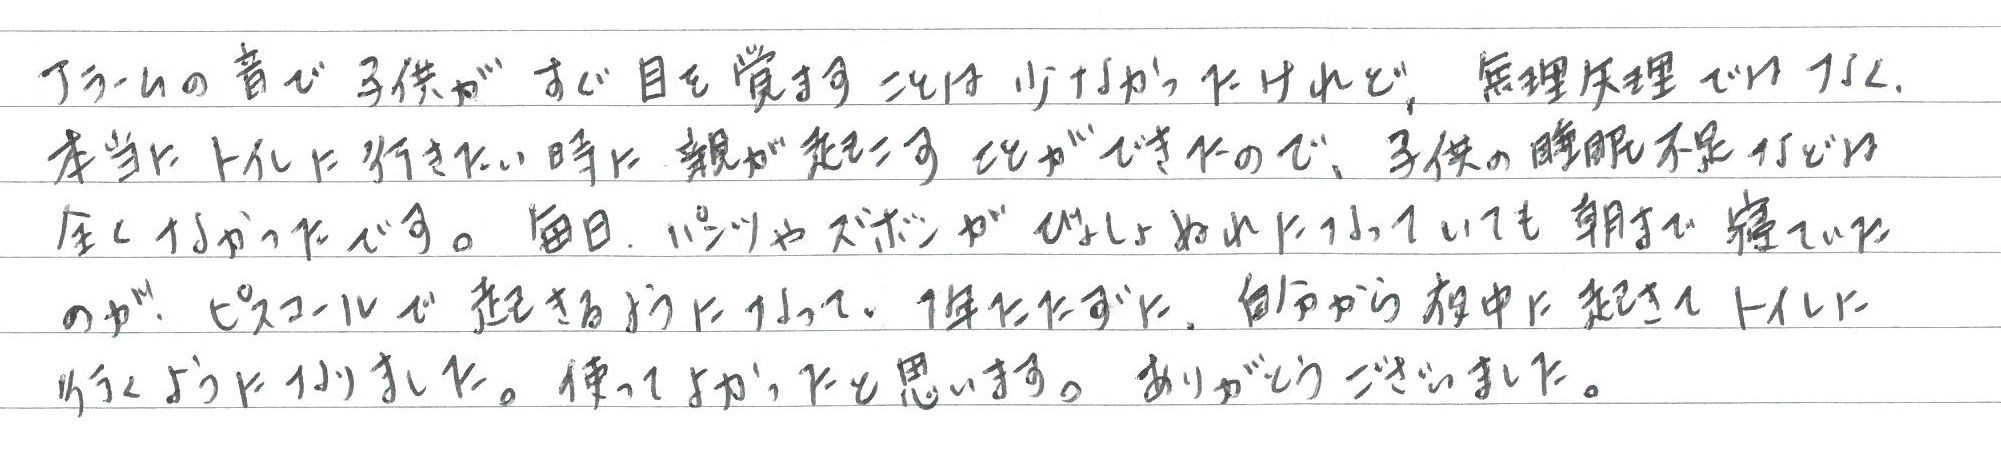 アラームの音で子供がすぐ目を覚ますことは少なかったけれど、無理矢理ではなく、
本当にトイレに行きたい時に親が起こすことができたので、子供の睡眠不足などは
全くなかったです。毎日、パンツやズボンがびしょぬれになっていても朝まで寝ていた
のが、ピスコールで起きるようになって、1年たたずに、自分から夜中に起きてトイレに
行くようになりました。使ってよかったと思います。ありがとうございました。